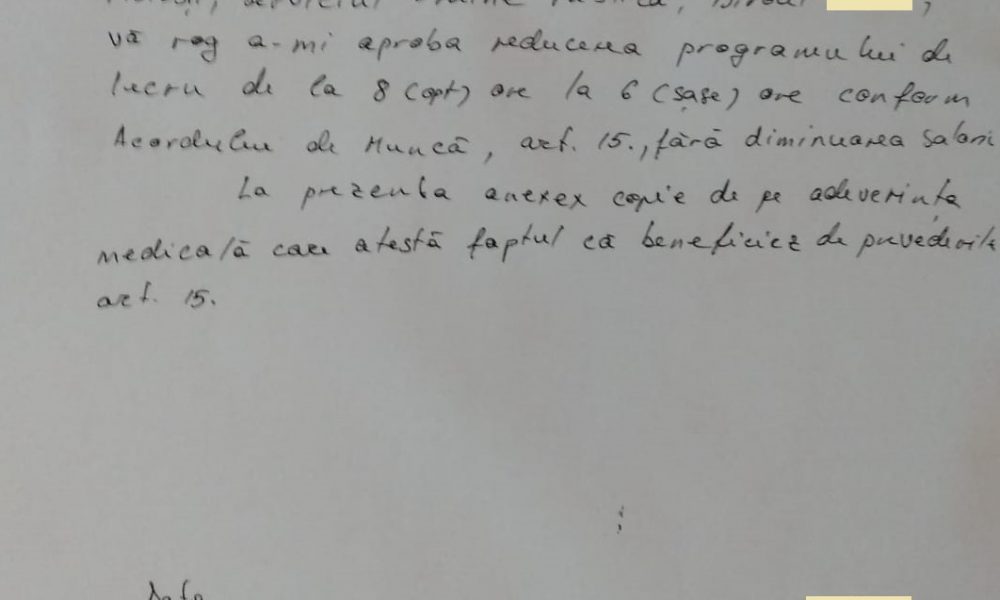 Serviciul Ordine Publică, Biroul
vă rog a-mi aproba reducerea programului de
lucru de la 8 (opt) ore la 6 (șase) ore conform
Acordului de Muncă, art. 15., fără diminuarea salari
La prezenta anexex copie de pe adeverința
medicală care atestă faptul că beneficiez de prevederile
art. 15.
Data